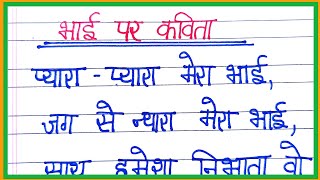 भाई पर कविता
प्यारा - प्यारा मेरा भाई,
जग से न्यारा मेरा भाई,
साथ हमेशा निभाता वो